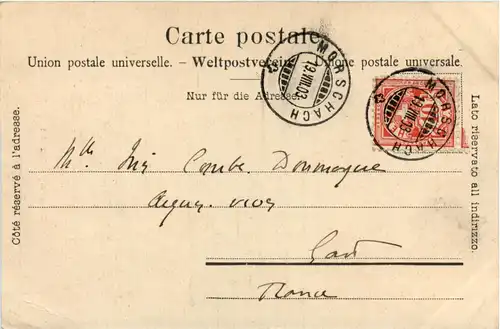 Carte postale.
Union postale universelle. – Weltpostverein. – Unione postale universale.
Nur für die Adresse.
MORSCHACH
19.VIII.03
MORSCHACH
19.VIII.03
Côté réservé à l'adresse.
Lato riservato all indirizzo.
Mlle Combe Dommergue
Aigues-vives
Gard
France